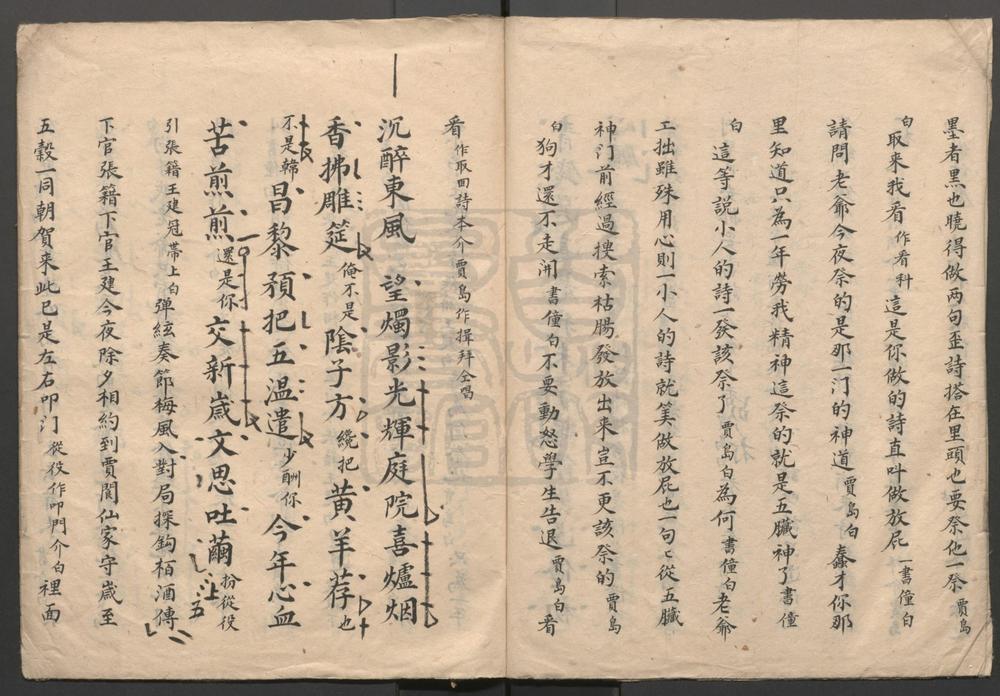 墨者黑也曉得做兩句歪詩搭在里頭也要祭他一祭賈島
白取來我看作看科這是你做的詩直叫做放屁書僮白
請問老爺今夜祭的是那一门的神道賈島白蠢才你那
里知道只為一年勞我精神這祭的就是五臟神了書僮
白這等說小人的詩一發該祭了賈島白為何書僮白老爺
工拙雖殊用心則一小人的詩就筭做放屁也一句匕從五臟
神门前經過搜索枯腸發放出来豈不更該祭的賈島
白狗才還不走開書僮白不要動怒學生告退賈島白看
看作取回詩本介賈島作揖拜仝唱
沉醉東風 望燭影光輝庭院喜爐烟
香拂雕筵俺不是陰子方纔把黄羊荐也
不是韓昌黎預把五温遣少酬你今年心血
苦煎煎還是你交新歲文思吐繭扮從役上五
引張籍王建冠帶上白弹絃奏節梅風入對局探鈎栢酒傳
下官張籍下官王建今夜除夕相約到賈閬仙家守歲至
五穀一同朝賀来此已是左右叩门從役作叩門介白裡面